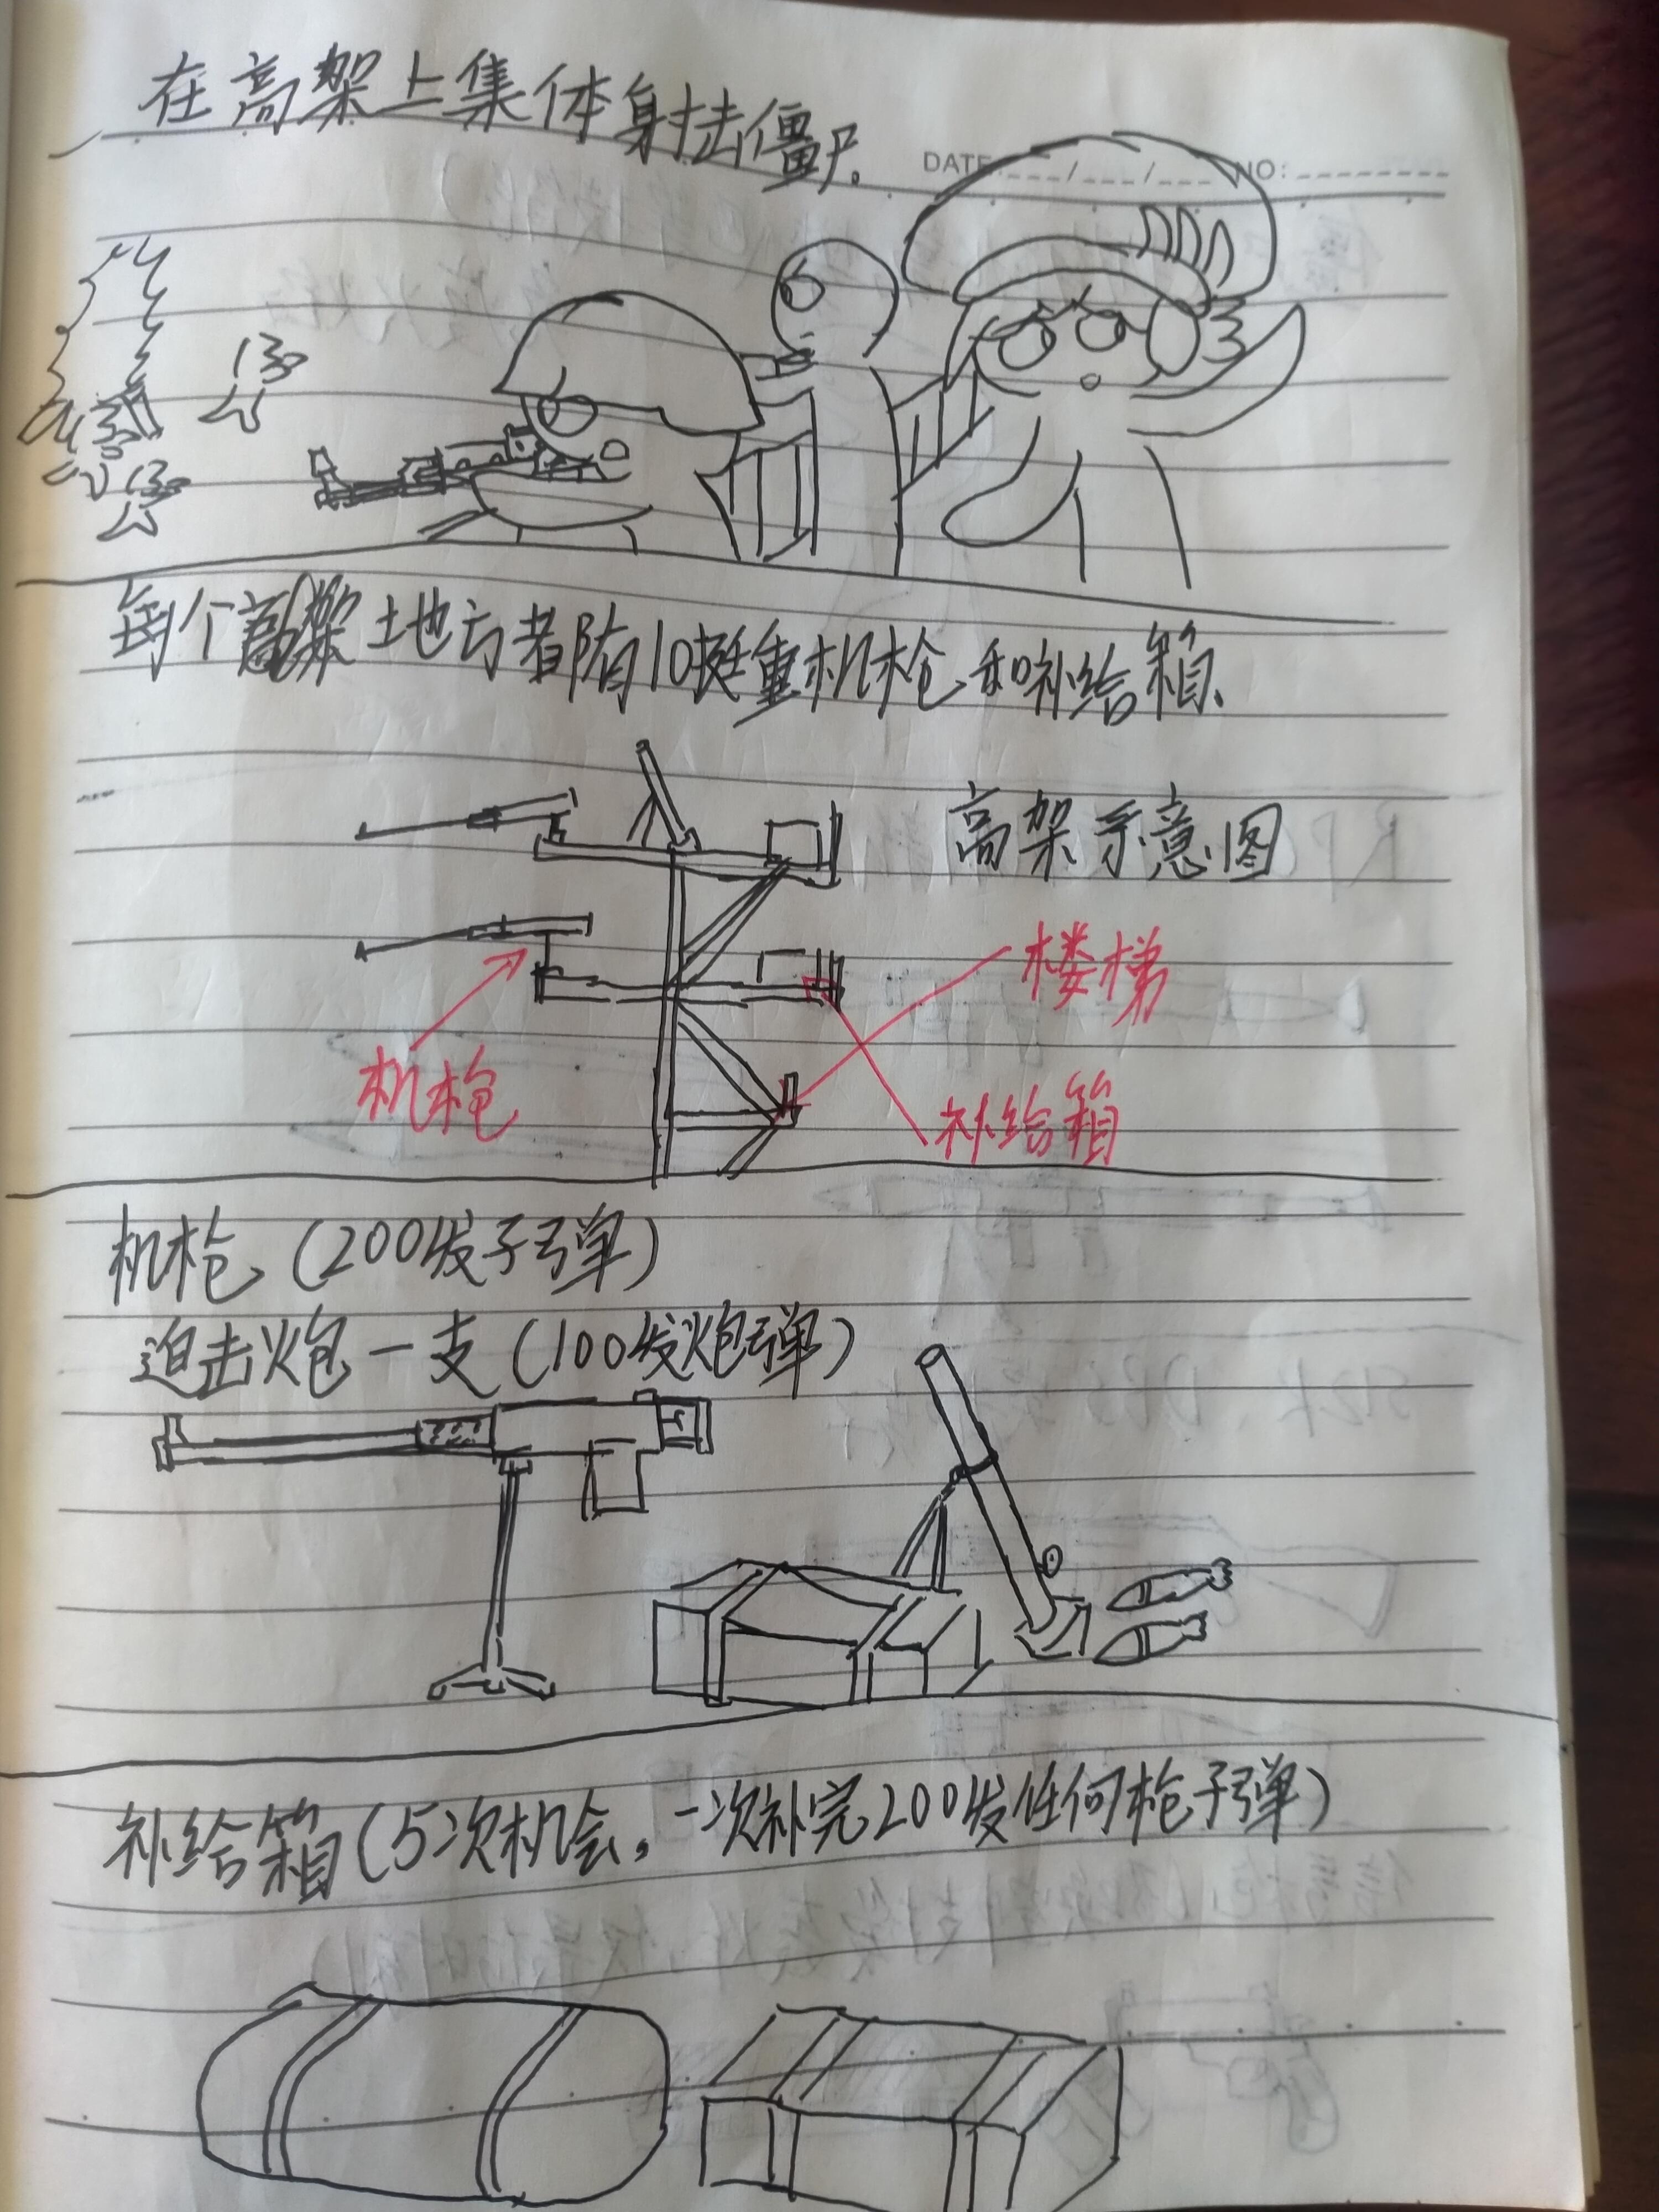 在高架上集体射击僵尸。
DATE: / / NO:
每个高架土地方都有10挺重机枪和补给箱、
高架示意图
楼梯
机枪
补给箱
机枪(200发子弹)
迫击炮一支(100发炮弹)
补给箱(5次机会,一次补完200发任何枪子弹)